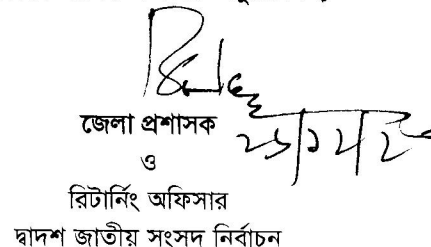 জেলা প্রশাসক
ও
রিটার্নিং অফিসার
দ্বাদশ জাতীয় সংসদ নির্বাচন